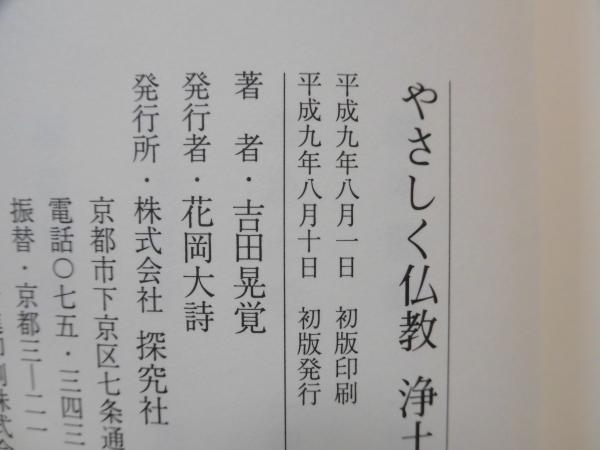 やさしく仏教 浄土
平成九年八月一日 初版印刷
平成九年八月十日 初版発行
著 者・吉田晃覚
発行者・花岡大詩
発行所・株式会社 探究社
京都市下京区七条通
電話〇七五・三四三
振替・京都三―二一
印刷株式会